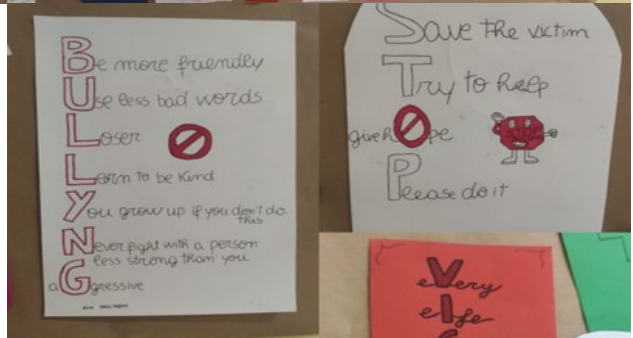 Be more friendly
Use less bad words
Loser
Learn to be kind
You grow up if you don't do
this
Never fight with a person
less strong than you
aGgressive
Save the victim
Try to help
give hOpe
STOP
Please do it
eVery